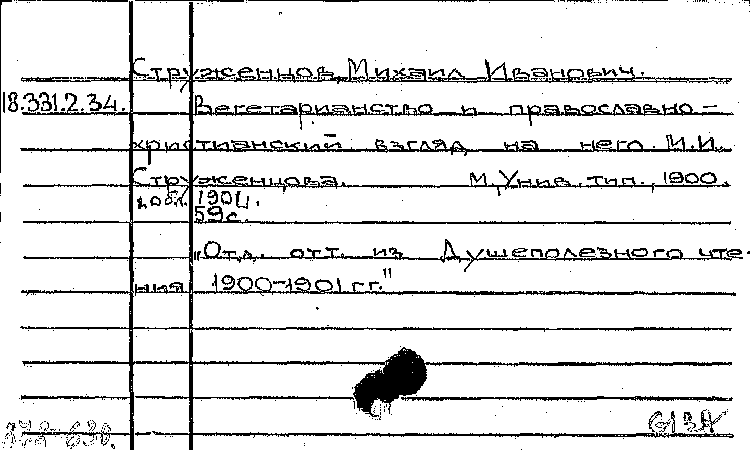 Струженцов, Михаил Иванович.
18.331.2.34. Вегетарианство и православно-
христианский взгляд на него. М.И.
Струженцова. М., Унив. тип., 1900.
обл. 1901.
59с.
"Отд. отт. из Душеполезного чте-
ния 1900-1901 гг."